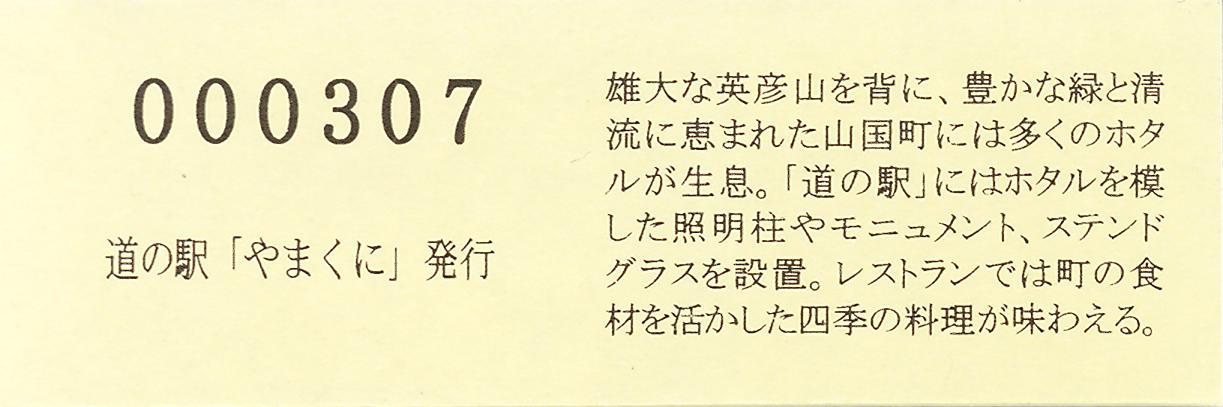 000307
道の駅「やまくに」発行
雄大な英彦山を背に、豊かな緑と清
流に恵まれた山国町には多くのホタ
ルが生息。「道の駅」にはホタルを模
した照明柱やモニュメント、ステンド
グラスを設置。レストランでは町の食
材を活かした四季の料理が味わえる。